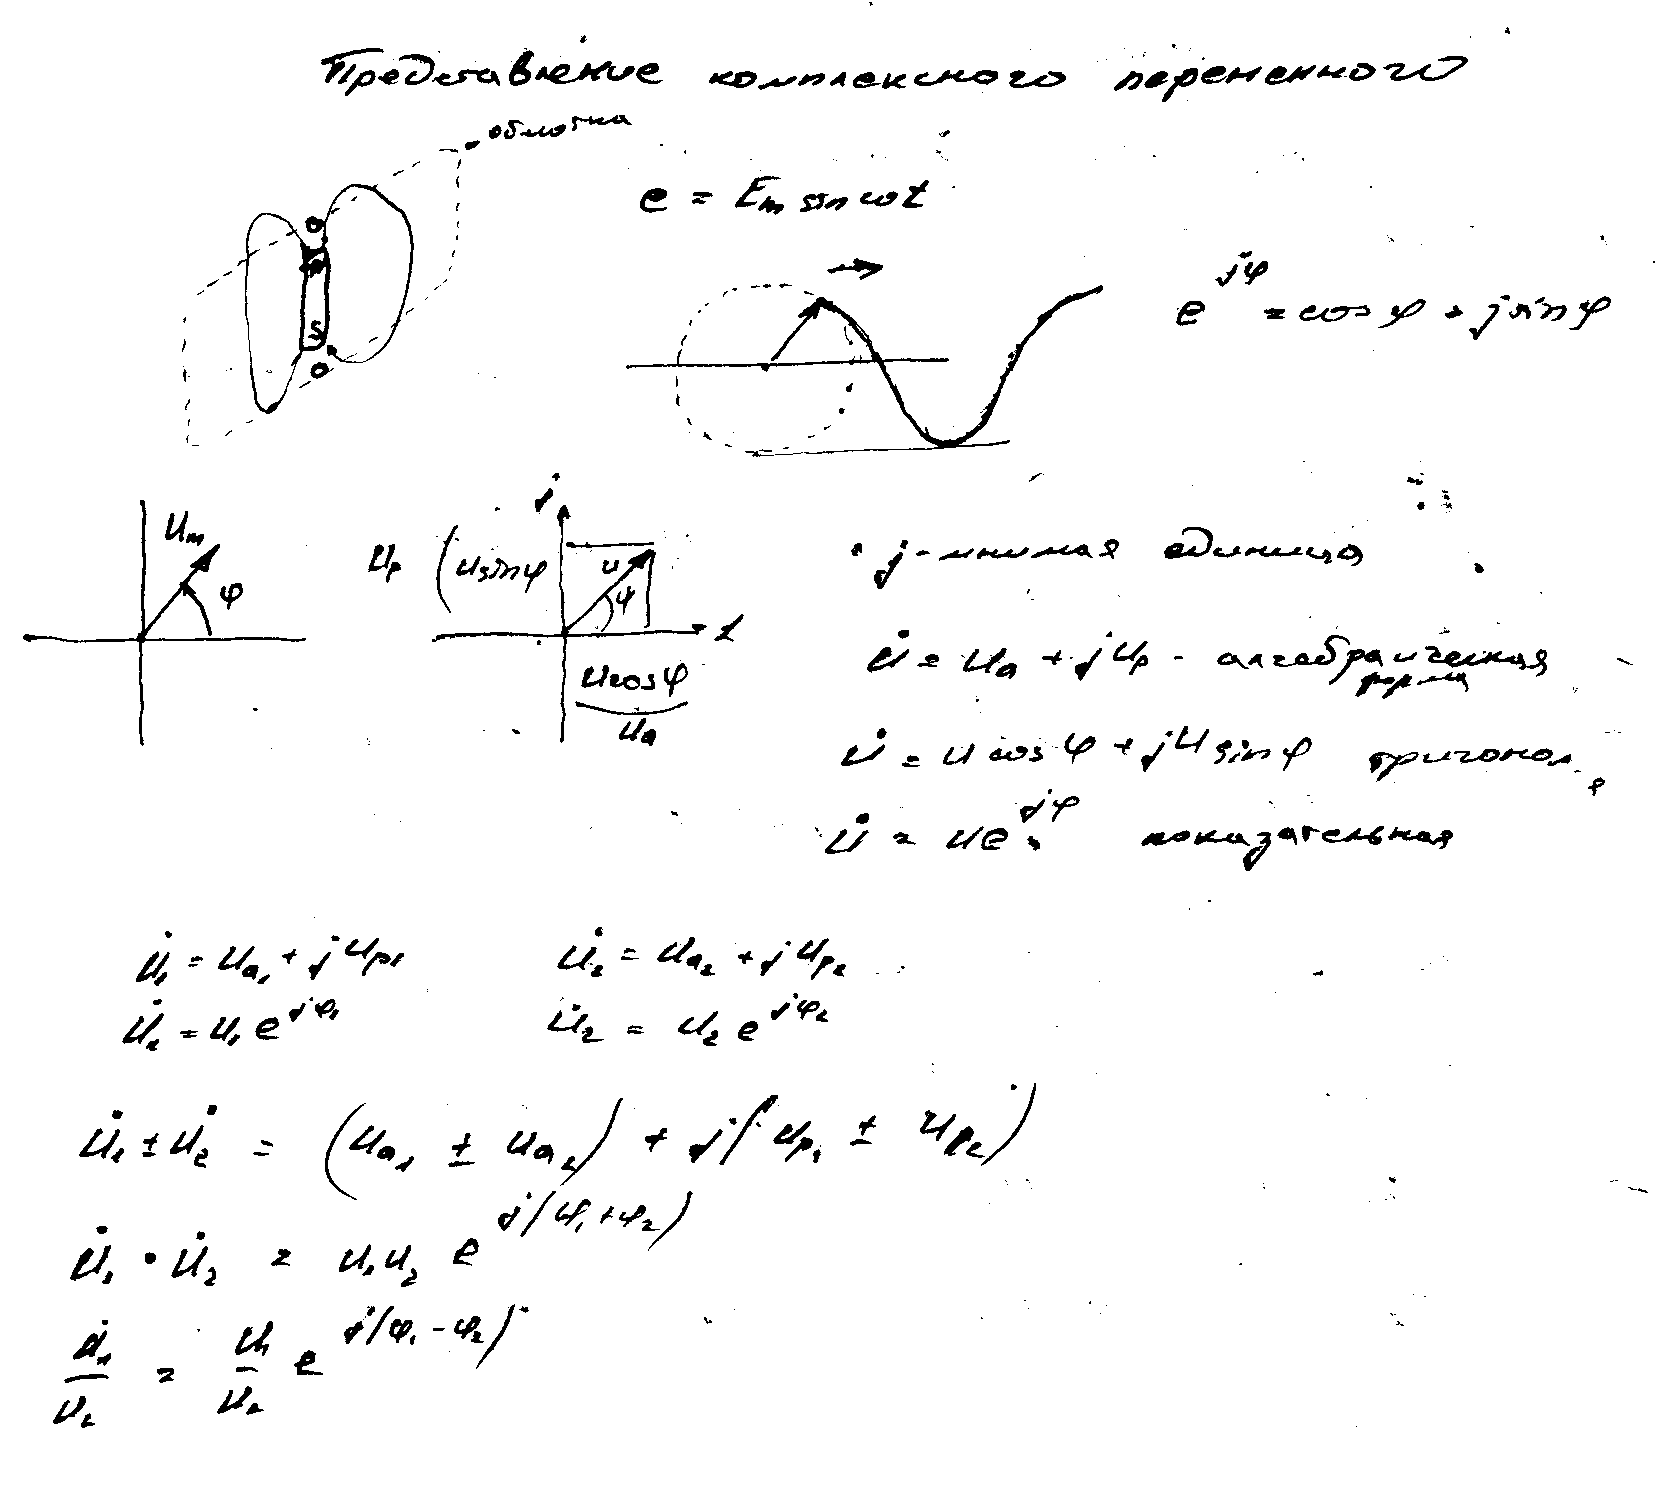 Представление комплексного переменного
обмотка
e = Eₘ sin ωt
e^{jφ} = cos φ + j sin φ
S
Uₘ
φ
Uₚ (U sin φ
j
U
φ
1
U cos φ
Uₐ
j - мнимая единица
U̇ = Uₐ + jUₚ - алгебраическая форма
U̇ = U cos φ + jU sin φ тригоном.
U̇ = Ue^{jφ} показательная
U̇₁ = Uₐ₁ + jUₚ₁ U̇₂ = Uₐ₂ + jUₚ₂
U̇₁ = U₁e^{jφ₁} U̇₂ = U₂e^{jφ₂}
U̇₁ ± U̇₂ = (Uₐ₁ ± Uₐ₂) + j(Uₚ₁ ± Uₚ₂)
U̇₁ · U̇₂ = U₁U₂e^{j(φ₁+φ₂)}
U̇₁/U₂ = U₁/U₂ e^{j(φ₁-φ₂)}